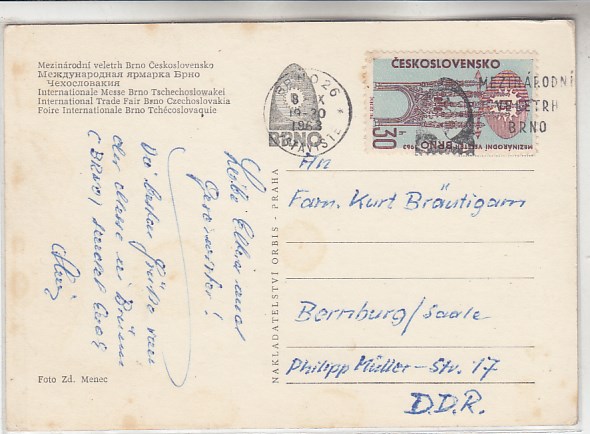 Mezinárodní veletrh Brno Československo
Международная ярмарка Брно
Чехословакия
Internationale Messe Brno Tschechoslowakei
International Trade Fair Brno Czechoslovakia
Foire Internationale Brno Tchécoslovaquie
BRNO 26
8. IX
19-20
1963
VÝSTAVIŠTĚ
BRNO
ČESKOSLOVENSKO
30 h
MEZINÁRODNÍ VELETRH BRNO 1963
MEZINÁRODNÍ
VELETRH
BRNO
Liebe Eltern und
Geschwister!
Die besten Grüße von
der Messe in Brünn
(Brno) sendet Euch
NAKLADATELSTVÍ ORBIS - PRAHA
An
Fam. Kurt Bräutigam
Bernburg/Saale
Philipp Müller-Str. 17
D.D.R.
Foto Zd. Menec